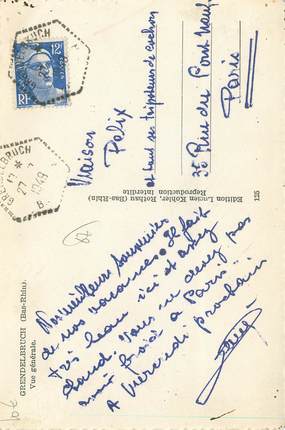 GRENDELBRUCH (Bas-Rhin).
Vue générale.
Meilleurs souvenirs
de nos vacances. Il fait
très beau ici et assez
chaud. Vous ne devez pas
avoir froid à Paris.
A mercredi prochain
Edition Lucien Kohler, Rothau (Bas-Rhin)
Reproduction Interdite
125
Maison
Félix
et tous ses
36 Rue du Pont Neuf
Paris
12F
RF
GRENDELBRUCH
27 - 7
1949
67